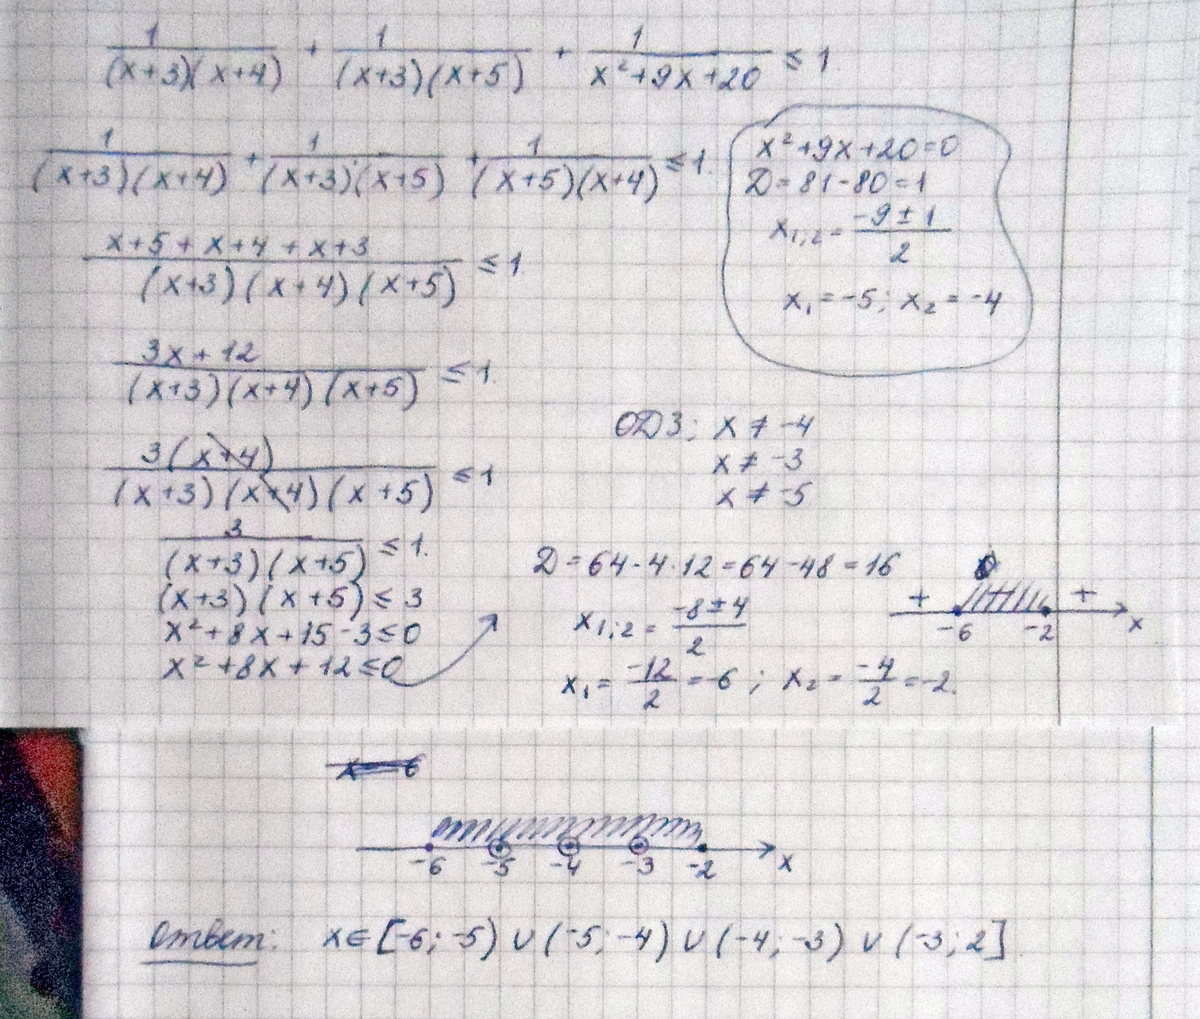 1/((x+3)(x+4)) + 1/((x+3)(x+5)) + 1/(x²+9x+20) ≤ 1.
1/((x+3)(x+4)) + 1/((x+3)(x+5)) + 1/((x+5)(x+4)) ≤ 1.
x²+9x+20=0
D=81-80=1
x₁;₂ = (-9±1)/2
x₁=-5; x₂=-4
(x+5+x+4+x+3)/((x+3)(x+4)(x+5)) ≤ 1.
(3x+12)/((x+3)(x+4)(x+5)) ≤ 1.
3(x+4)/((x+3)(x+4)(x+5)) ≤ 1
ОДЗ: x ≠ -4
x ≠ -3
x ≠ -5
3/((x+3)(x+5)) ≤ 1.
(x+3)(x+5) ≤ 3
x²+8x+15-3≤0
x²+8x+12≤0
D=64-4·12=64-48=16
x₁;₂ = (-8±4)/2
x₁ = -12/2 = -6; x₂ = -4/2 = -2.
+ +
-6 -2 x
-6 -5 -4 -3 -2 x
Ответ: x∈[-6;-5)∪(-5;-4)∪(-4;-3)∪(-3;2].